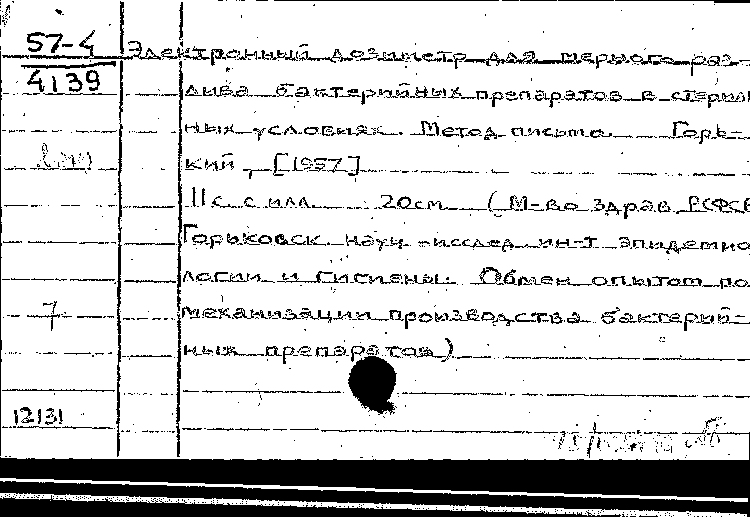 57-4
4139
Электронный дозиметр для мерного раз-
лива бактерийных препаратов в стериль
ных условиях. Метод. письмо. Горь-
кий, [1957]
11 с. с илл. 20 см. (М-во здрав. РСФСР
Горьковск. науч.-исслед. ин-т эпидемио
логии и гигиены. Обмен опытом по
7
механизации производства бактерий-
ных препаратов)
12131